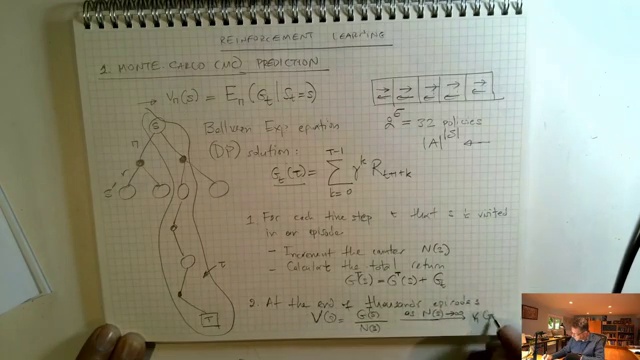 REINFORCEMENT LEARNING
1. MONTE CARLO (MC) PREDICTION
→ Vπ(s) = Eπ(Gt | St=s)
2^5 = 32 policies
|A|^|S| ←
Bellman Exp equation
(DP) solution:
Gt(τ) = Σ_{k=0}^{T-1} γ^k R_{t+1+k}
S
π
s' r
τ
T
1. For each time step t that s is visited
in an episode
- Increment the counter N(s)
- Calculate the total return
G^T(s) = G^T(s) + Gt
2. At the end of thousands episodes
V(s) = G(s)/N(s) as N(s)→∞